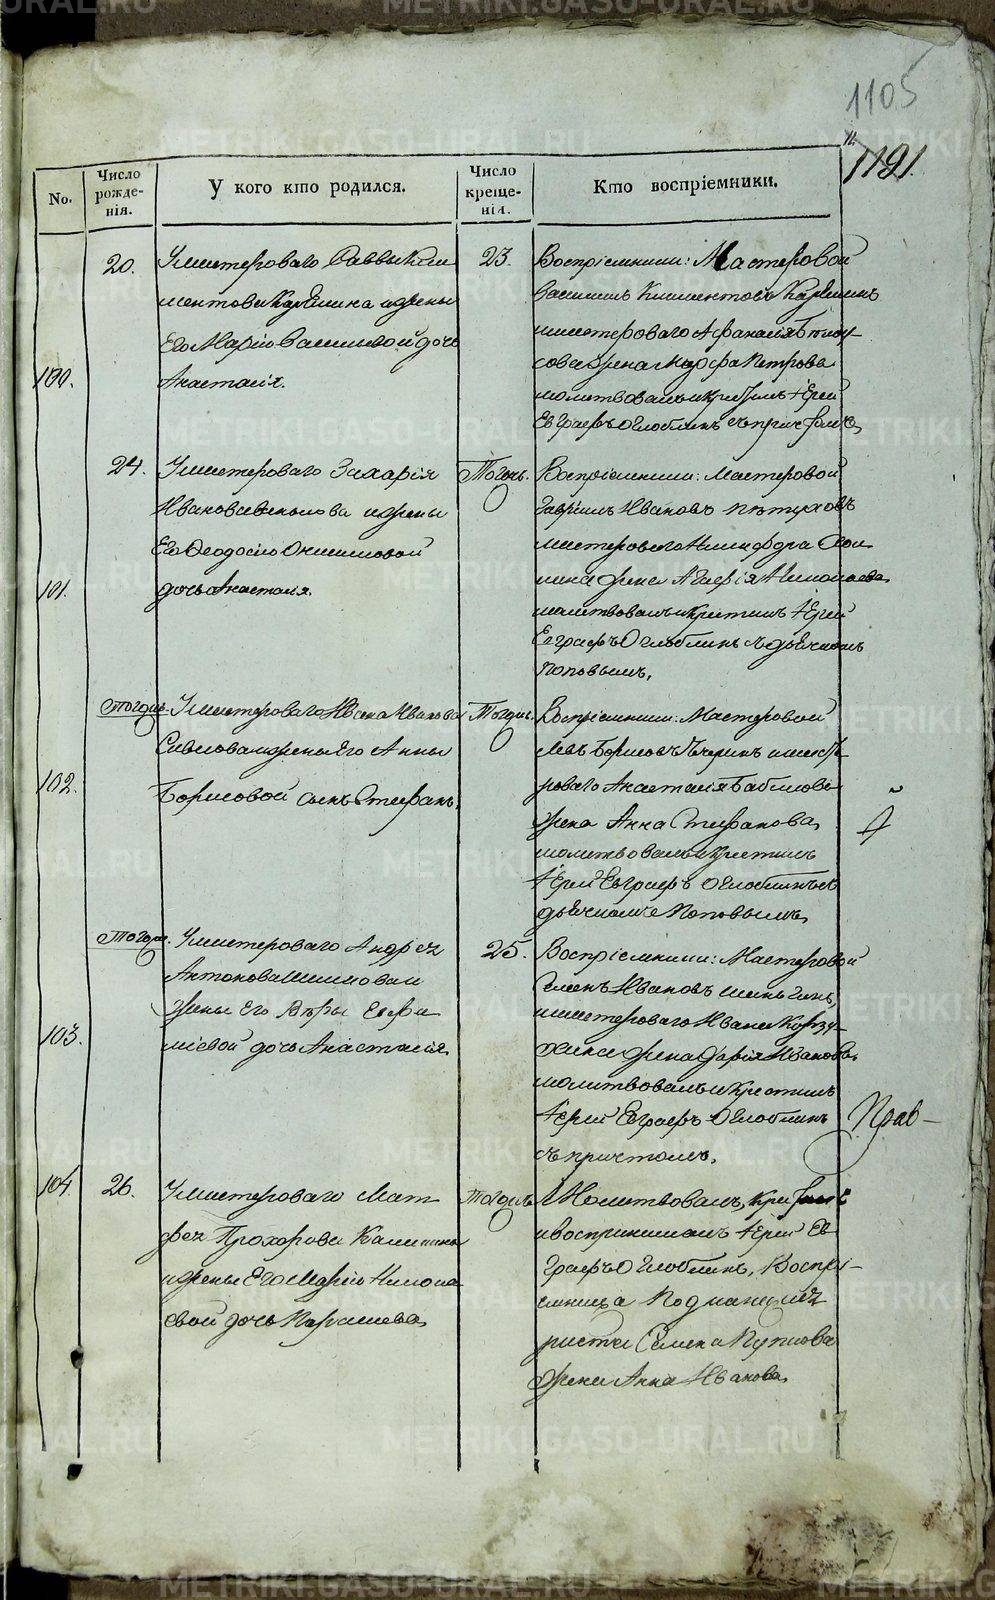 1105
1191.
No.
Число рожде-нія.
У кого кто родился.
Число креще-нія.
Кто воспріемники.
100.
20.
Умастероваго Саввы Кли
ментова Карякина ижены
Его Маріи Васильевой дочь
Анастасія.
23.
Воспріемники: Мастеровой
Василій Климентовъ
имастероваго Афанасія
жена Марфа Петрова
молитвовалъ икрестилъ Іерей
Евграфъ Оглоблинъ съпричтомъ,
101.
24.
Умастероваго Захарія
Иванова ижены
Его Феодосіи Онисимовой
дочь Анастасія.
Тогожъ.
Воспріемники: Мастеровой
Гавріилъ Ивановъ Пѣтуховъ
мастероваго Никифора
жена Агафія Николаева
молитвовалъ икрестилъ Іерей
Евграфъ Оглоблинъ съ дьячкомъ
Поповымъ,
102.
Тогожъ.
Умастероваго Ивана Иванова
ижены Его Анны
Борисовой сынъ Стефанъ,
Тогожъ.
Воспріемники: Мастеровой
Левъ Борисовъ имасте
роваго Анастасія
жена Анна Стефанова,
молитвовалъ икрестилъ
Іерей Евграфъ Оглоблинъ съ
дьячкомъ Поповымъ,
103.
Тогожъ.
Умастероваго Андрея
Антонова
жены Его Вѣры Ефи
міевой дочь Анастасія,
25.
Воспріемники: Мастеровой
Семенъ Ивановъ
имастероваго Ивана
жена Дарія Иванова,
молитвовалъ икрестилъ
Іерей Евграфъ Оглоблинъ
съ причтомъ,
Прав-
104.
26.
Умастероваго Мат
фея Прохорова Калинина
ижены Его Маріи Никола
евой дочь Парасковія,
Тогожъ
Молитвовалъ, крестилъ
ивоспринималъ Іерей Ев
графъ Оглоблинъ, Воспрі-
емница
Семена
жена Анна Иванова,
METRIKI.GASO-URAL.RU